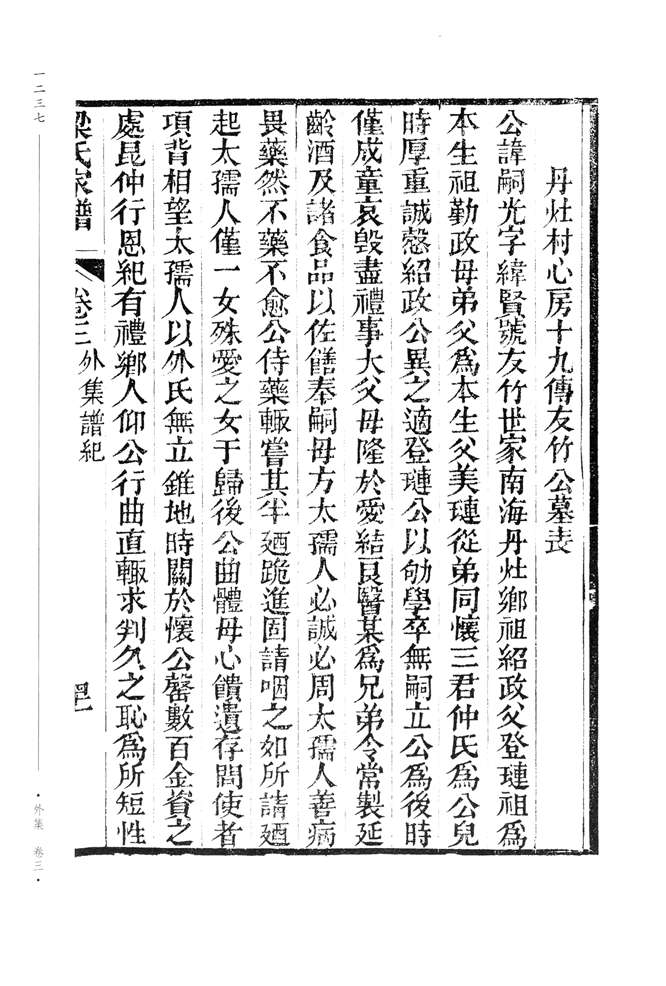 丹灶村心房十九傳友竹公墓表
公諱嗣光字緯賢號友竹世家南海丹灶鄉祖紹政父登璉祖爲
本生祖勤政母弟父爲本生父美璉從弟同懷三君仲氏爲公兒
時厚重誠慤紹政公異之適登璉公以劬學卒無嗣立公爲後時
僅成童哀毀盡禮事大父母隆於愛結良醫某爲兄弟令常製延
齡酒及諸食品以佐饍奉嗣母方太孺人必誠必周太孺人善病
畏藥然不藥不愈公侍藥輙嘗其半廼跪進固請咽之如所請廼
起太孺人僅一女殊愛之女于歸後公曲體母心饋遺存問使者
項背相望太孺人以外氏無立錐地時關於懷公罄數百金貲之
處昆仲行恩紀有禮鄉人仰公行曲直輙求判久之恥爲所短性
梁氏家譜 卷三 外集譜紀
一二三七
·外集 卷三·